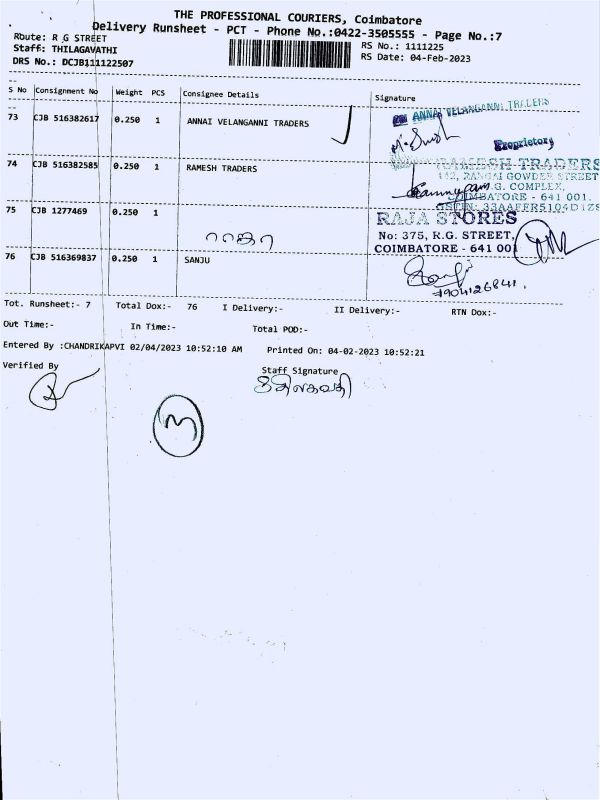 THE PROFESSIONAL COURIERS, Coimbatore
Delivery Runsheet - PCT - Phone No.:0422-3505555 - Page No.:7
Route: R G STREET
Staff: THILAGAVATHI
DRS No.: DCJB111122507
RS No.: 1111225
RS Date: 04-Feb-2023
S No Consignment No Weight PCS Consignee Details Signature
73 CJB 516382617 0.250 1 ANNAI VELANGANNI TRADERS
ANNAI VELANGANNI TRADERS
Proprietory
74 CJB 516382585 0.250 1 RAMESH TRADERS
RAMESH TRADERS
142, RANGAI GOWDER STREET
G. COMPLEX,
COIMBATORE - 641 001.
GSTIN: 33AAFFR5104D1ZS
75 CJB 1277469 0.250 1
ராஜா
RAJA STORES
No: 375, R.G. STREET,
COIMBATORE - 641 001
76 CJB 516369837 0.250 1 SANJU
7904126841.
Tot. Runsheet:- 7 Total Dox:- 76 I Delivery:- II Delivery:- RTN Dox:-
Out Time:- In Time:- Total POD:-
Entered By :CHANDRIKAPVI 02/04/2023 10:52:10 AM Printed On: 04-02-2023 10:52:21
Verified By
Staff Signature
திலகவதி